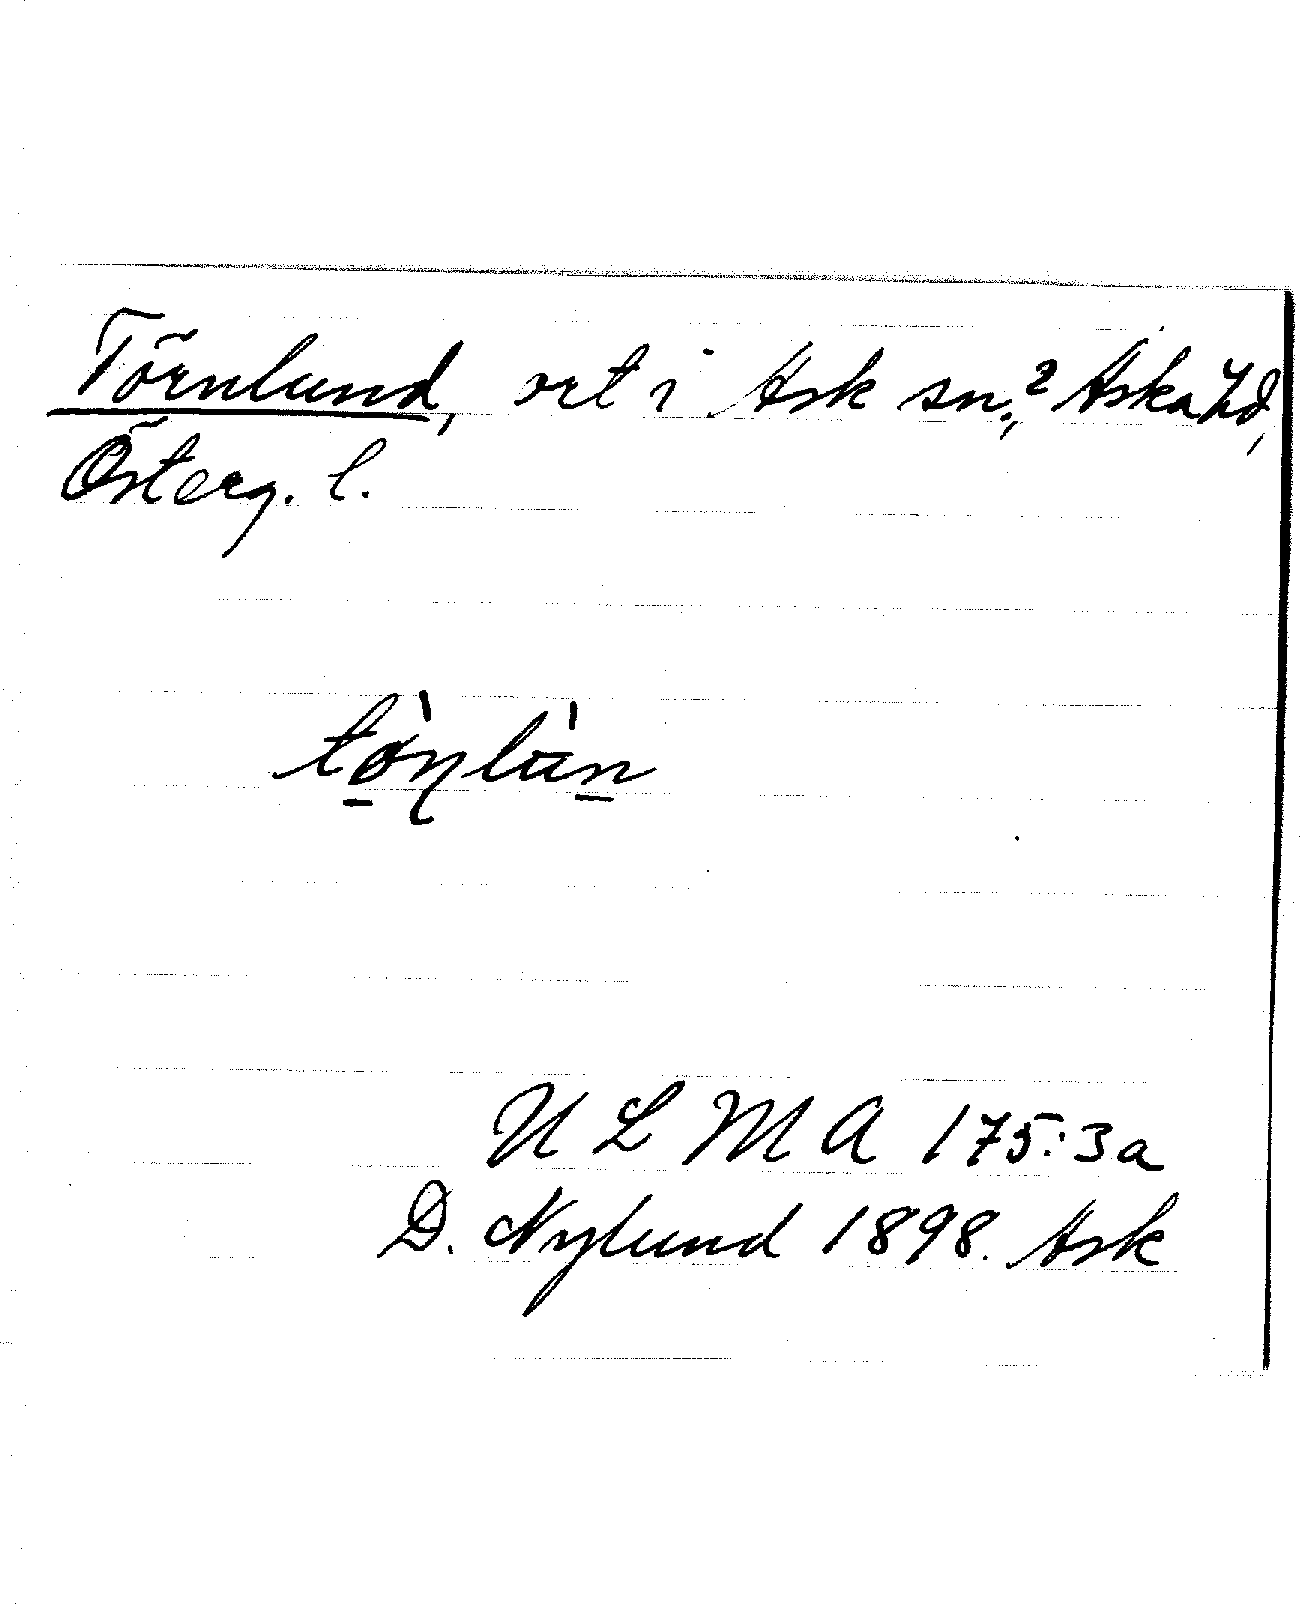 Törnlund, ort i Ask sn.,? Aska hd,
Österg. l.
tǿ̠ɳlùn̠
ULMA 175:3a
D. Nylund 1898. Ask